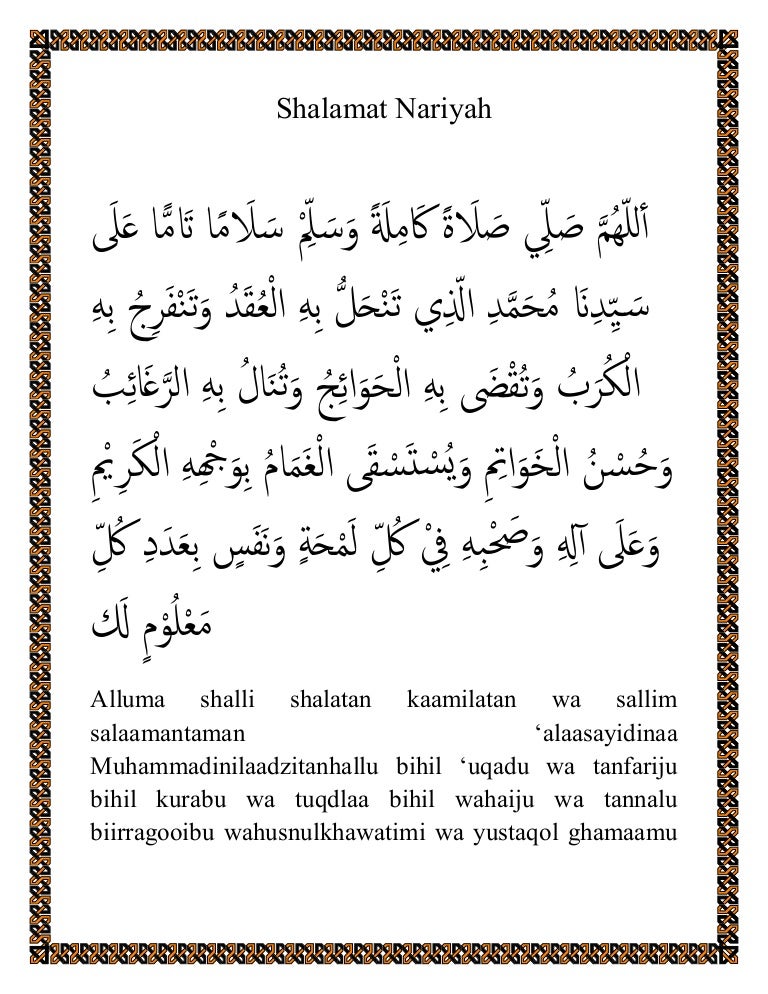 Shalamat Nariyah
أللّهُمَّ صَلِّي صَلَاةً كَامِلَةً وَسَلِّمْ سَلَامًا تَامًّا عَلَى
سَيِّدِنَا مُحَمَّدِ الّذِي تَنْحَلُّ بِهِ الْعُقَدُ وَتَنْفَرِجُ بِهِ
الْكُرَبُ وَتُقْضَى بِهِ الْحَوَائِجُ وَتُنَالُ بِهِ الرَّغَائِبُ
وَحُسْنُ الْخَوَاتِمِ وَيُسْتَسْقَى الْغَمَامُ بِوَجْهِهِ الْكَرِيْمِ
وَعَلَى آلِهِ وَصَحْبِهِ فِيْ كُلِّ لَمْحَةٍ وَنَفَسٍ بِعَدَدِ كُلِّ
مَعْلُوْمٍ لَكَ
Alluma shalli shalatan kaamilatan wa sallim
salaamantaman ‘alaasayidinaa
Muhammadinilaadzitanhallu bihil ‘uqadu wa tanfariju
bihil kurabu wa tuqdlaa bihil wahaiju wa tannalu
biirragooibu wahusnulkhawatimi wa yustaqol ghamaamu